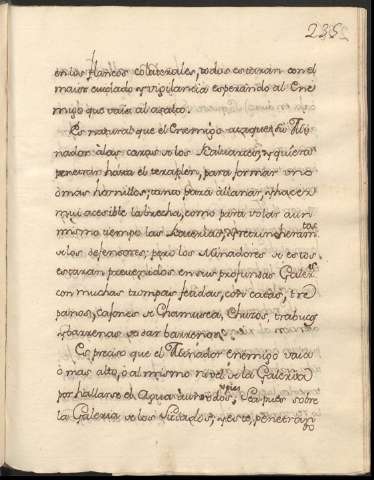 235
en los flancos colaterales, todos estaran con el
maior cuydado y vigilancia esperando al Ene
migo que vaia al asalto.
Es natural que el Enemigo ataque su Mi
nador à las caras de los Baluartes, y quiera
penetrar hasta el terraplen, para formar uno
ò mas hornillos; tanto para allanar, y hacer
mui acesible la brecha, como para volar à un
mismo tiempo las y retrincheramtos
de los defensores: pero los Minadores de estos
estaran prevenidos en sus profundas Galerías
con muchas trompas fetidas, con caxas, tre
panos, caxones de Chamusca, Chuzos, trabucos
y barrenas de dar barrenos.
Es preciso que el Minador enemigo vaia
ò mas alto, ò al mismo nivel de la Galeria
por hallarse el Agua à unos dos pies, Sea pues sobre
la Galeria de los Sitiados, y este, penetrando